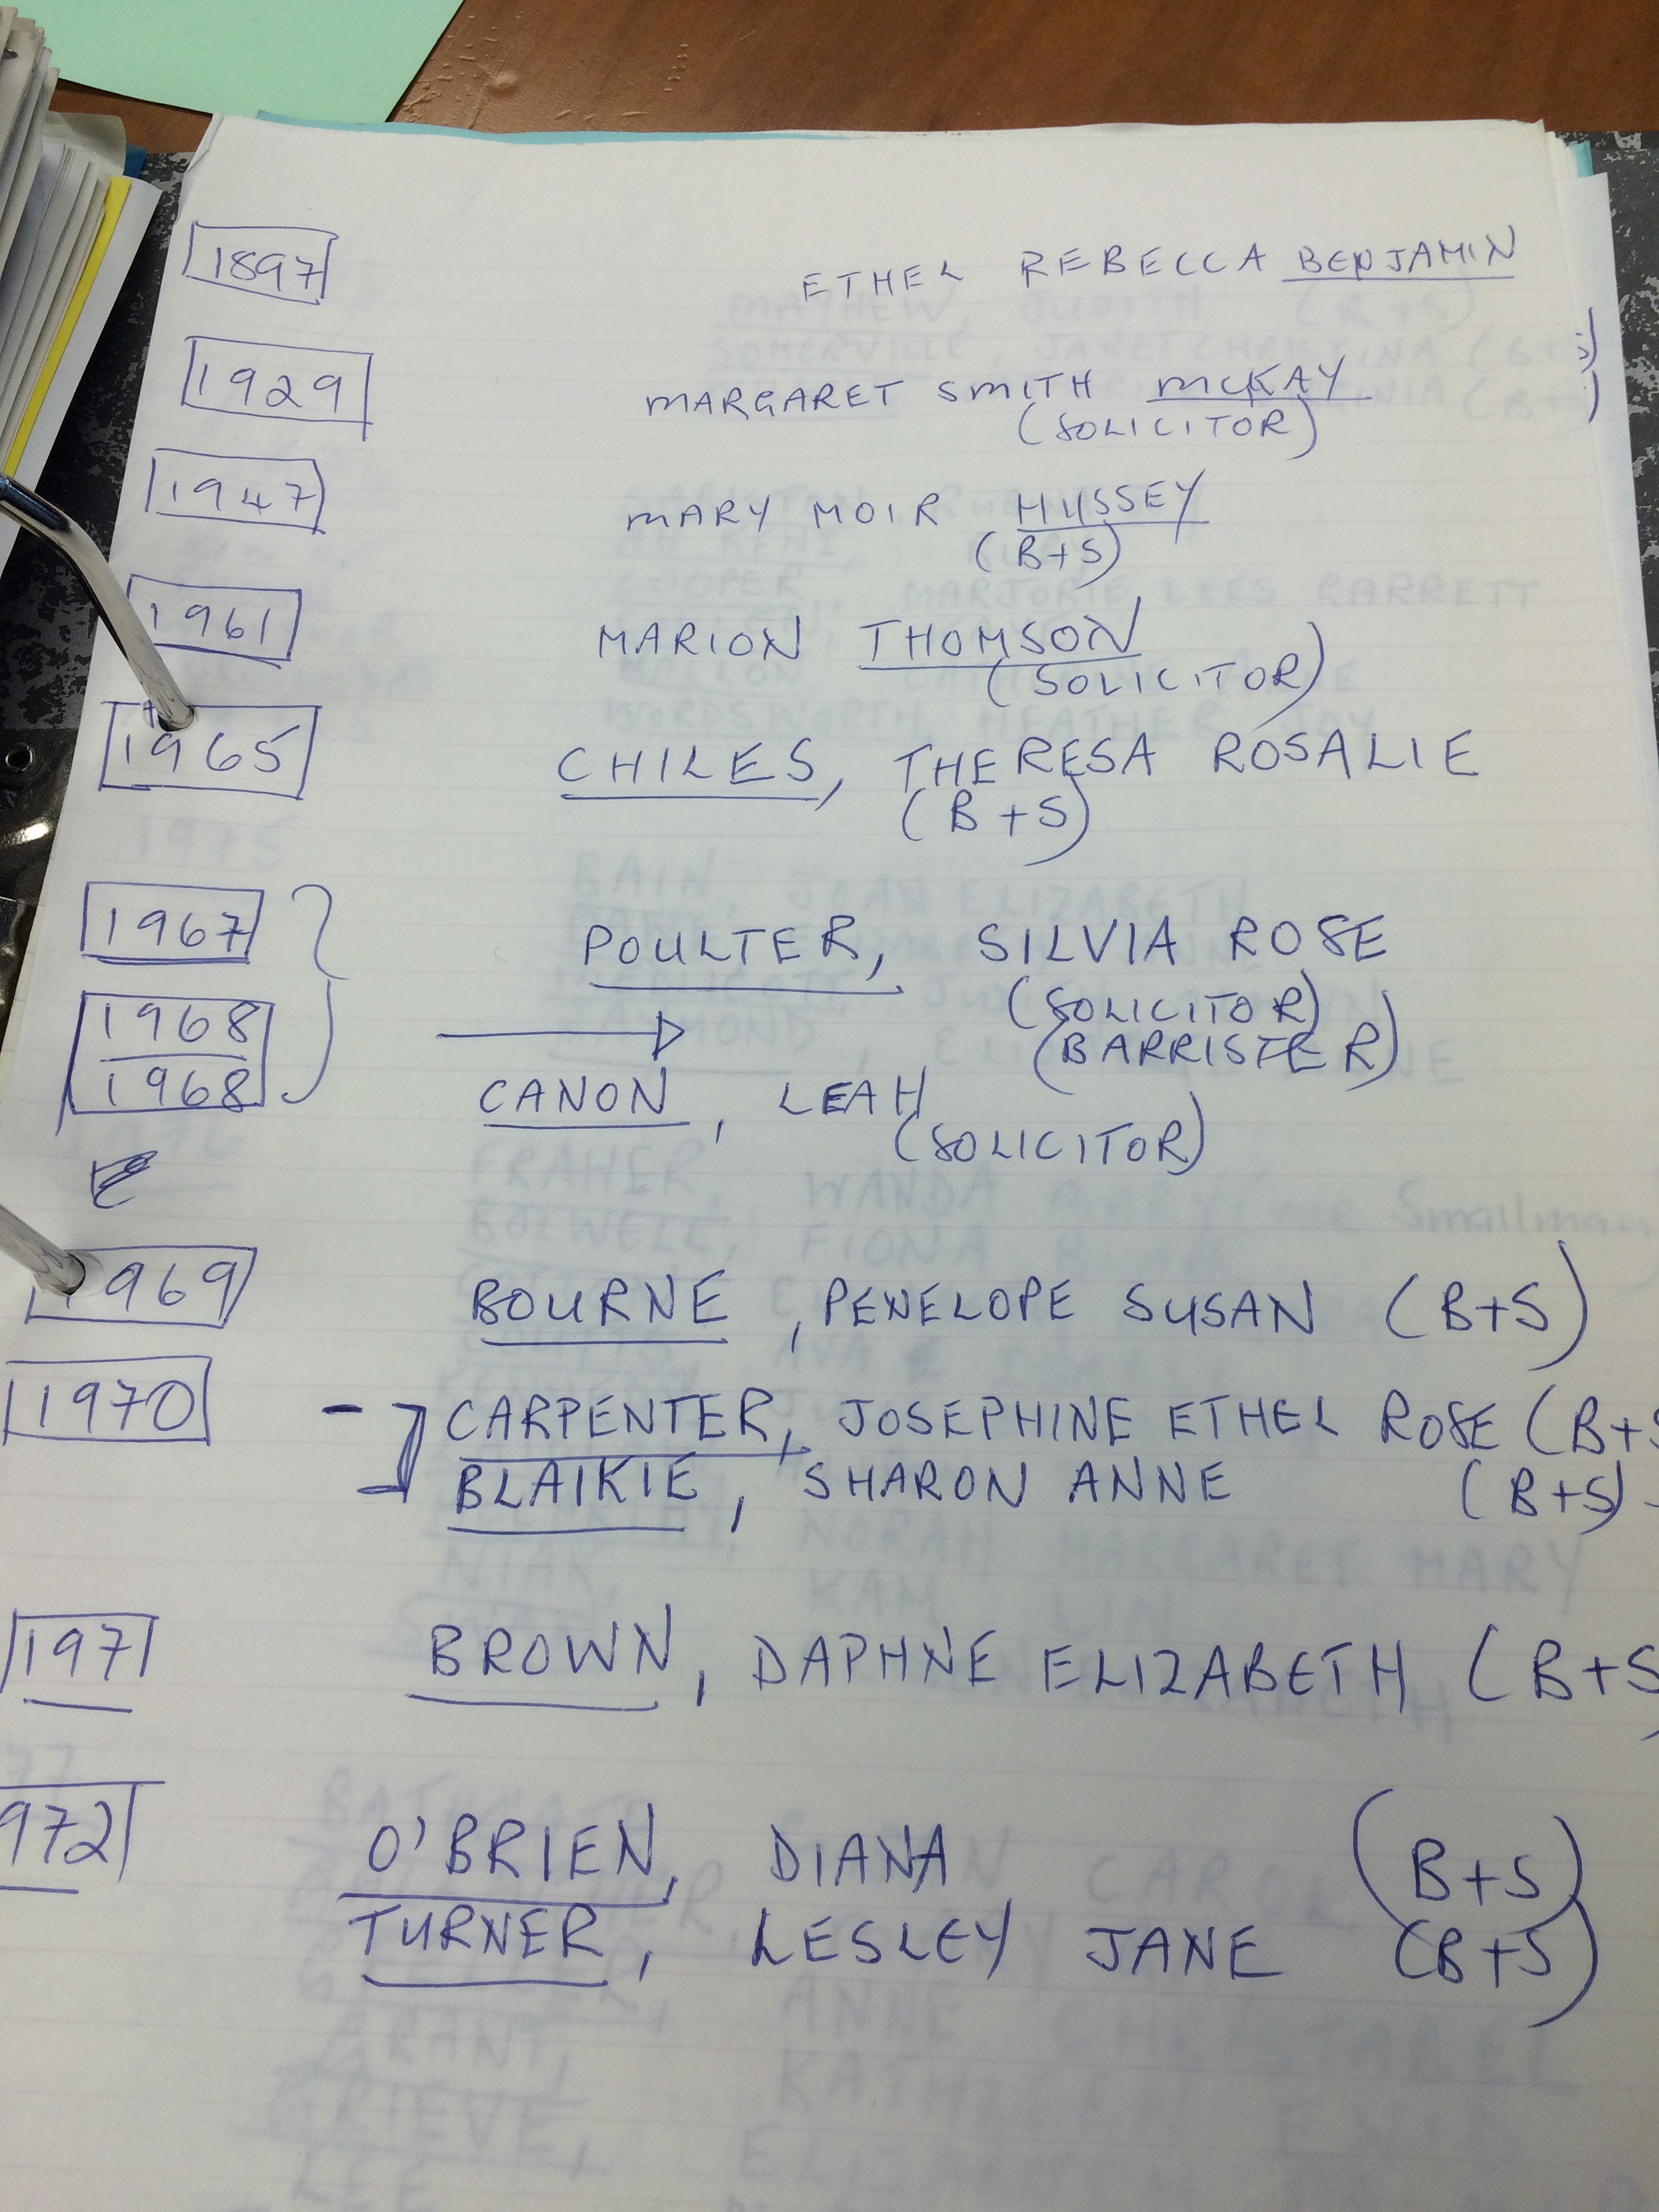 1897 ETHEL REBECCA BENJAMIN
1929 MARGARET SMITH MCKAY
(SOLICITOR)
1947 MARY MOIR HUSSEY
(B+S)
1961 MARION THOMSON
(SOLICITOR)
1965 CHILES, THERESA ROSALIE
(B+S)
1967 POULTER, SILVIA ROSE
(SOLICITOR)
1968 (BARRISTER)
1968 CANON, LEAH
(SOLICITOR)
1969 BOURNE, PENELOPE SUSAN (B+S)
1970 - CARPENTER, JOSEPHINE ETHEL ROSE (B+S
BLAIKIE, SHARON ANNE (B+S)
1971 BROWN, DAPHNE ELIZABETH (B+S)
972 O'BRIEN, DIANA (B+S)
TURNER, LESLEY JANE (B+S)